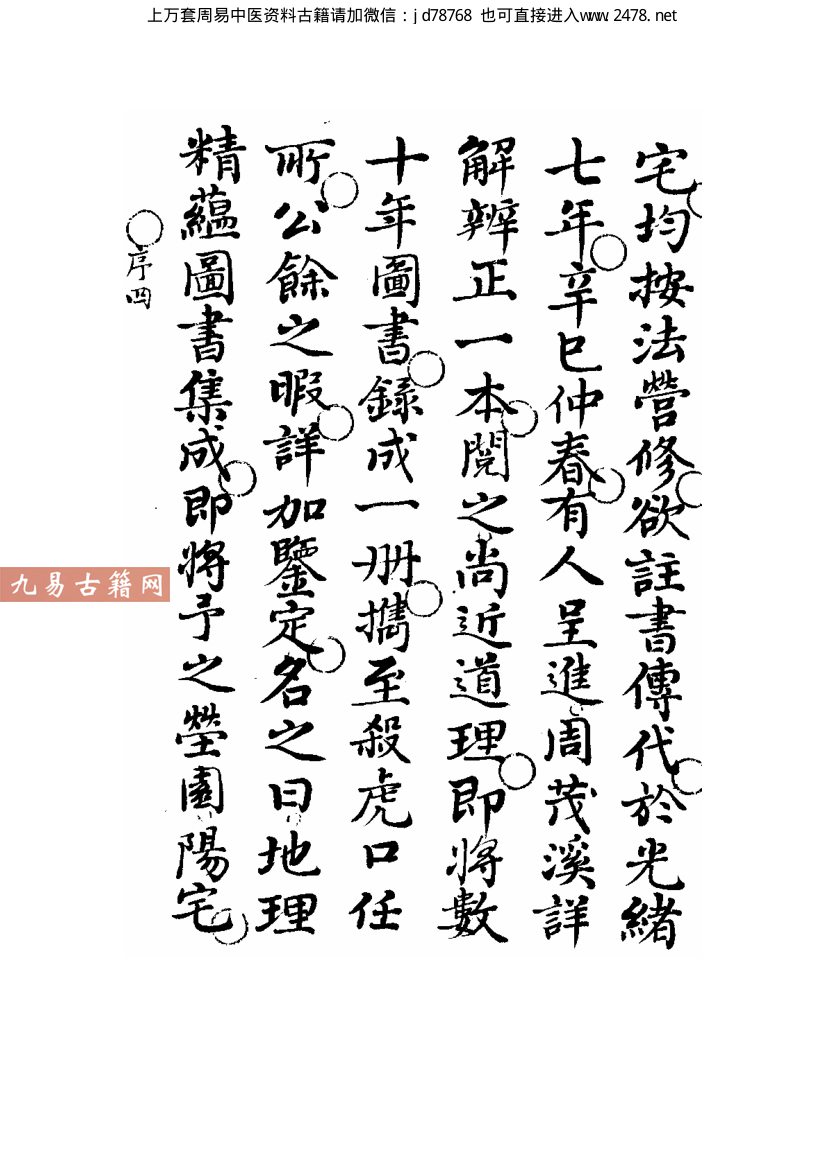 上万套周易中医资料古籍请加微信：jd78768 也可直接进入www.2478.net
宅均按法營修欲註書傳代於光緒
七年辛巳仲春有人呈進周茂溪詳
解辨正一本閱之尚近道理即將數
十年圖書錄成一册攜至殺虎口任
所公餘之暇詳加鑒定名之曰地理
精蘊圖書集成即將予之塋園陽宅
序四
九易古籍网